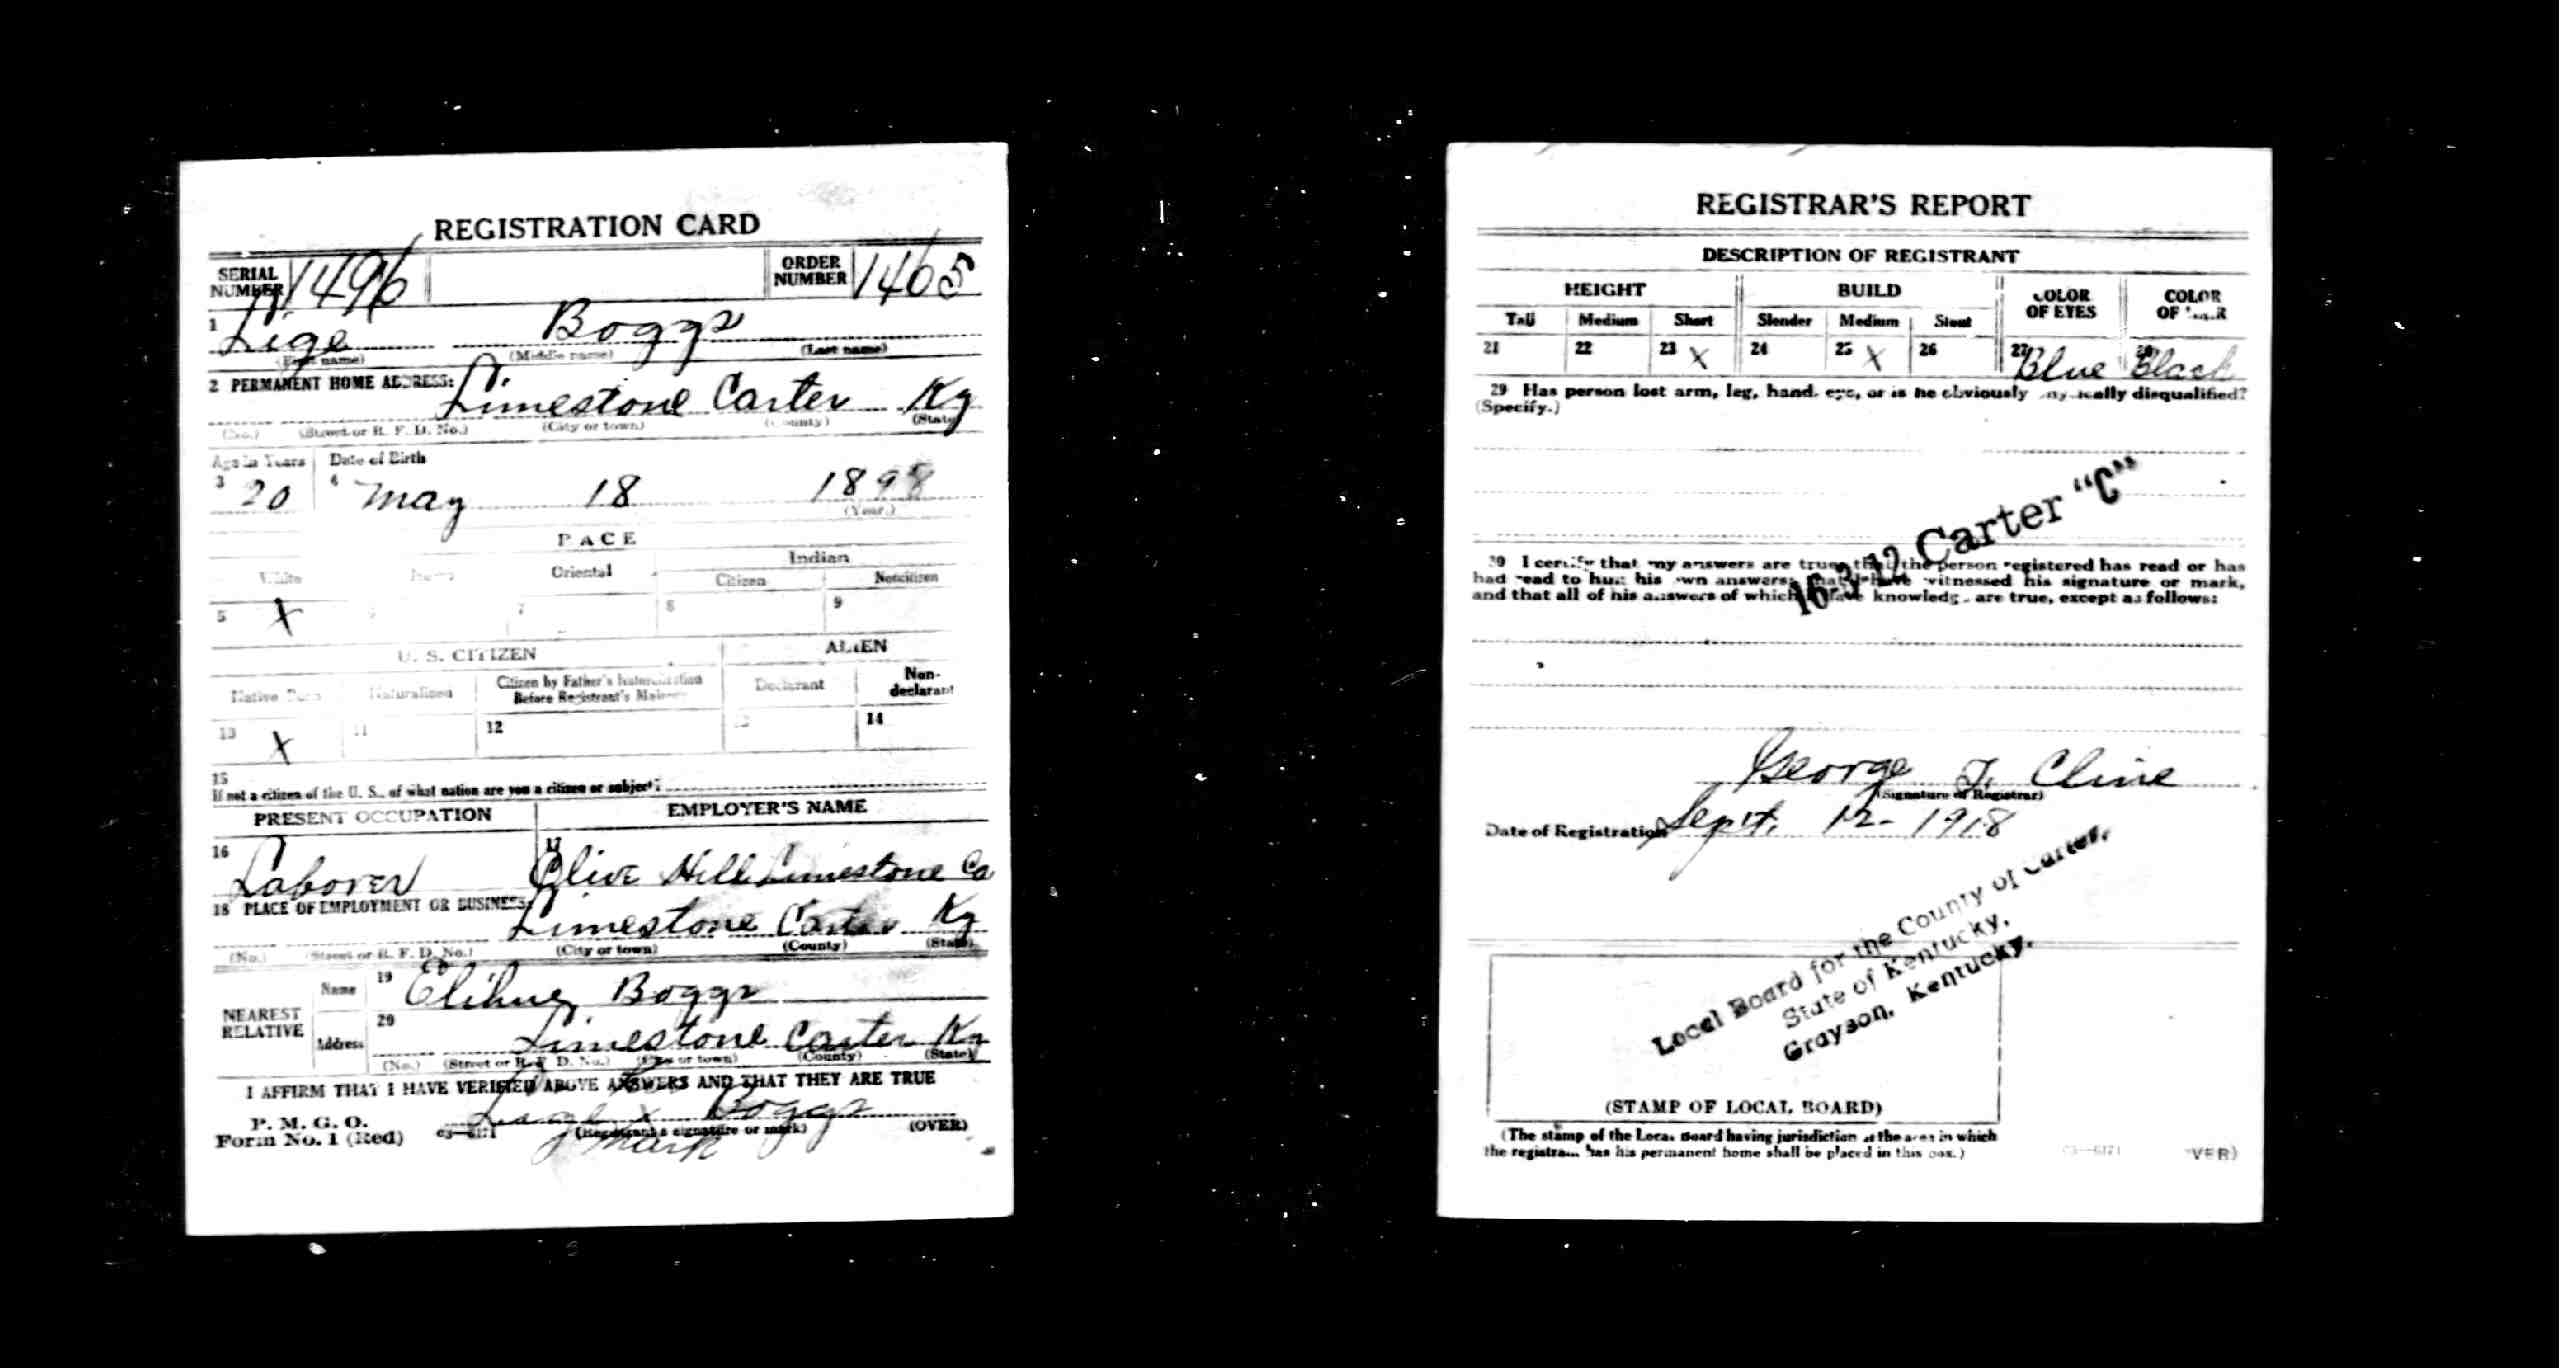 REGISTRATION CARD
SERIAL NUMBER 1496 ORDER NUMBER 1465
1 Lige Boggs
(First name) (Middle name) (Last name)
2 PERMANENT HOME ADDRESS:
Limestone Carter Ky
(No.) (Street or R. F. D. No.) (City or town) (County) (State)
Age in Years Date of Birth
3 20 4 May 18 1898
(Year.)
RACE
White Oriental Indian
Citizen Noncitizen
5 X 7 8 9
U. S. CITIZEN ALIEN
Native Born Naturalized Citizen by Father's Naturalization Before Registrant's Majority Declarant Non-declarant
10 X 11 12 13 14
15
If not a citizen of the U. S., of what nation are you a citizen or subject?
PRESENT OCCUPATION EMPLOYER'S NAME
16 Laborer 17 Olive Hill Limestone Co
18 PLACE OF EMPLOYMENT OR BUSINESS:
Limestone Carter Ky
(No.) (Street or R. F. D. No.) (City or town) (County) (State)
NEAREST RELATIVE
Name 19 Boggs
Address 20 Limestone Carter Ky
(No.) (Street or R. F. D. No.) (City or town) (County) (State)
I AFFIRM THAT I HAVE VERIFIED ABOVE ANSWERS AND THAT THEY ARE TRUE
P. M. G. O.
Form No. 1 (Red) 03—6171 x Boggs
(Registrant's signature or mark) (OVER)
mark
REGISTRAR'S REPORT
DESCRIPTION OF REGISTRANT
HEIGHT BUILD COLOR OF EYES COLOR OF HAIR
Tall Medium Short Slender Medium Stout
21 22 23 X 24 25 X 26 27 Blue 28 Black
29 Has person lost arm, leg, hand, eye, or is he obviously physically disqualified?
(Specify.)
16-3-12 Carter "C"
30 I certify that my answers are true; that the person registered has read or has
had read to him his own answers; that I have witnessed his signature or mark,
and that all of his answers of which I have knowledge are true, except as follows:
George T. Cline
(Signature of Registrar)
Date of Registration Sept. 12 - 1918
Local Board for the County of Carter,
State of Kentucky,
Grayson, Kentucky.
(STAMP OF LOCAL BOARD)
(The stamp of the Local Board having jurisdiction of the area in which
the registrant has his permanent home shall be placed in this box.)
03—6171 (OVER)